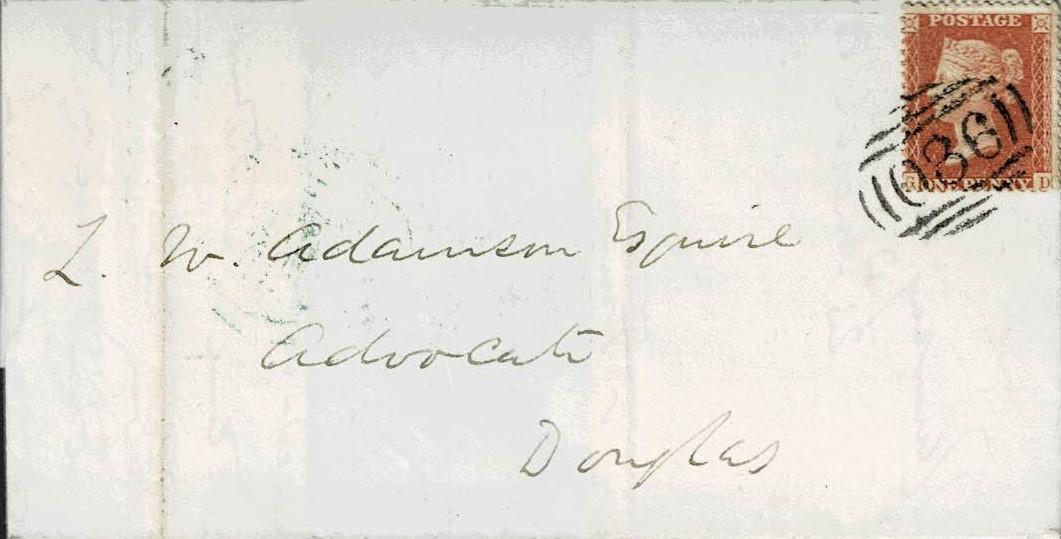 POSTAGE
036
ONE PENNY D
L. W. Adamson Esquire
Advocate
Douglas